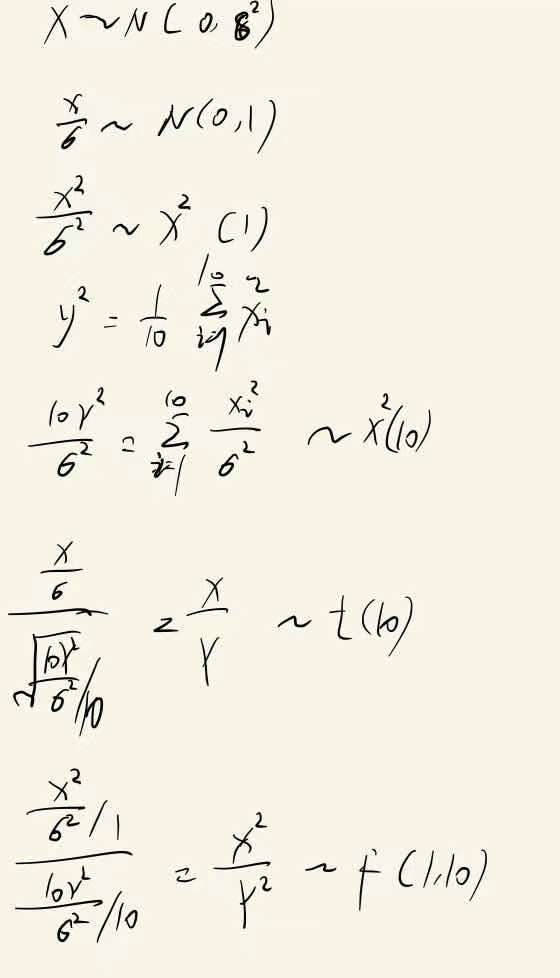 X ~ N(0, 6²)
x/6 ~ N(0,1)
x²/6² ~ X²(1)
y² = 1/10 Σ_{i=1}^{10} x_i²
10Y²/6² = Σ_{i=1}^{10} x_i²/6² ~ X²(10)
(X/6)/(√(10Y²/6²/10)) = X/Y ~ t(10)
(X²/6²/1)/(10Y²/6²/10) = X²/Y² ~ F(1,10)